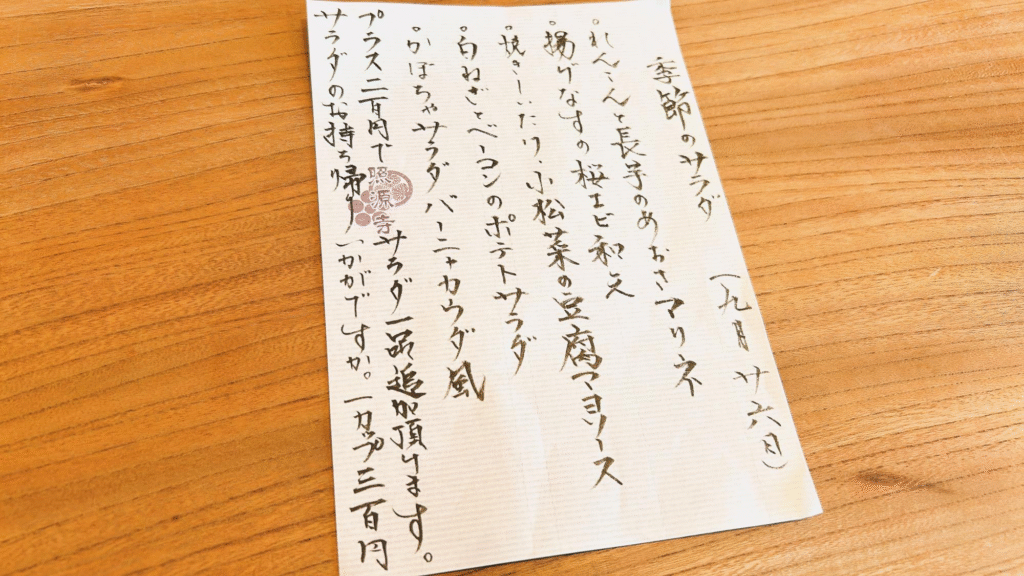 季節のサラダ (九月廿六日)
。れんこんと長芋のあおさマリネ
。揚げなすの桜エビ和え
。焼きしいたけ、小松菜の豆腐マヨソース
。白ねぎとベーコンのポテトサラダ
。かぼちゃサラダバーニャカウダ風
プラス二百円でサラダ一品追加頂けます。
サラダのお持ち帰りいかがですか。一カップ三百円
照源寺